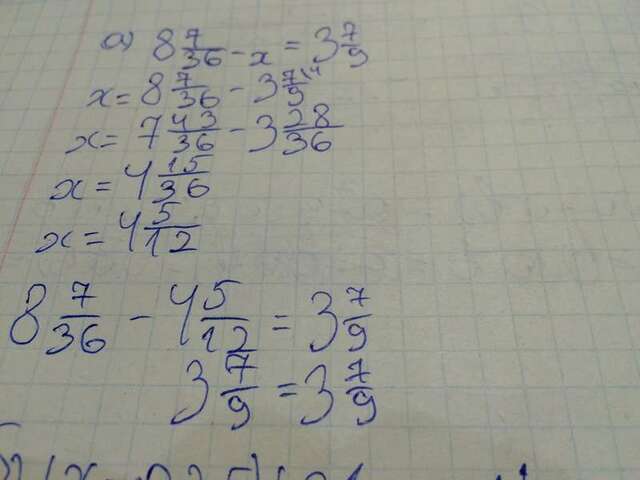 а) 8 7/36 - x = 3 7/9
x = 8 7/36 - 3 7/9 \4
x = 7 43/36 - 3 28/36
x = 4 15/36
x = 4 5/12
8 7/36 - 4 5/12 = 3 7/9
3 7/9 = 3 7/9